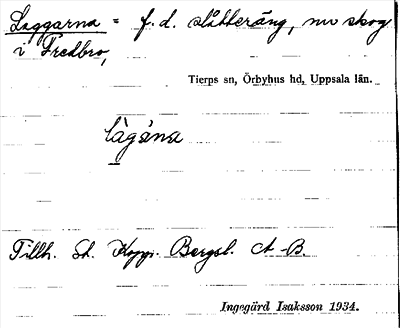 Laggarna = f. d. slåtteräng, nu skog
i Fredbro,
Tierps sn, Örbyhus hd, Uppsala län.
làgána
Tillh. St. Kopp. Bergsl. A-B.
Ingegärd Isaksson 1934.